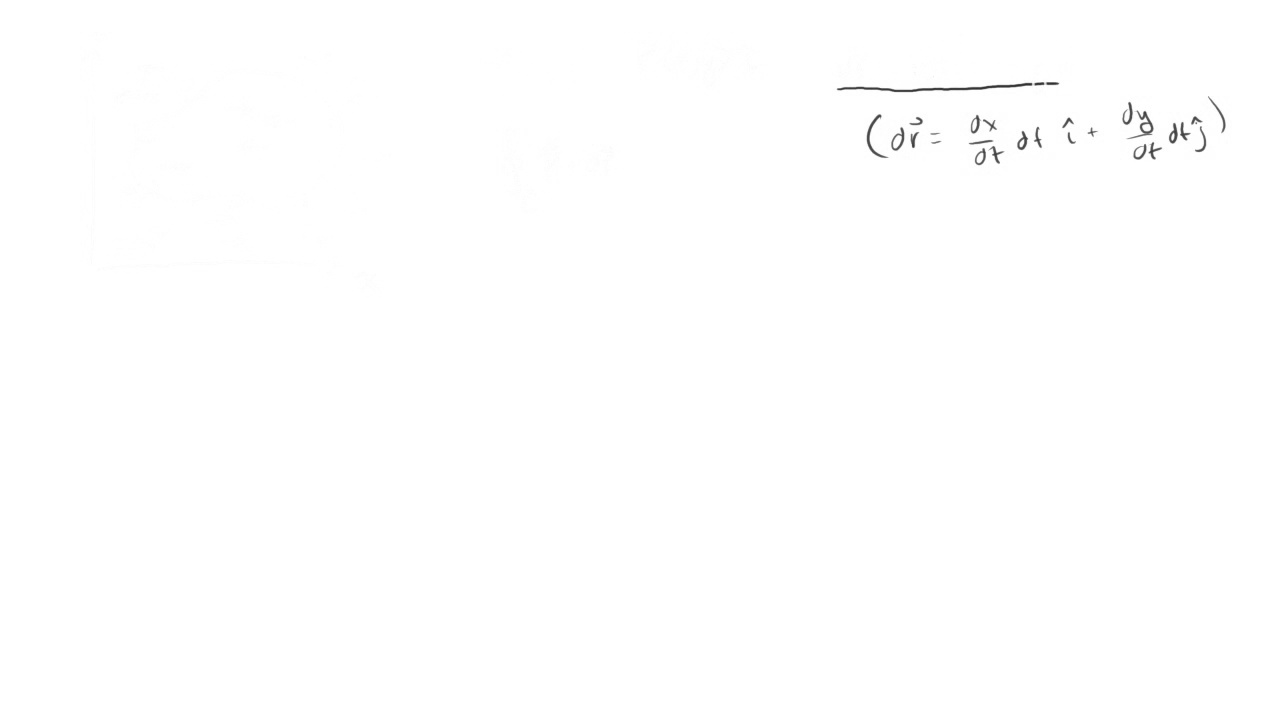 (dr⃗ = dx/dt dt î + dy/dt dt ĵ)